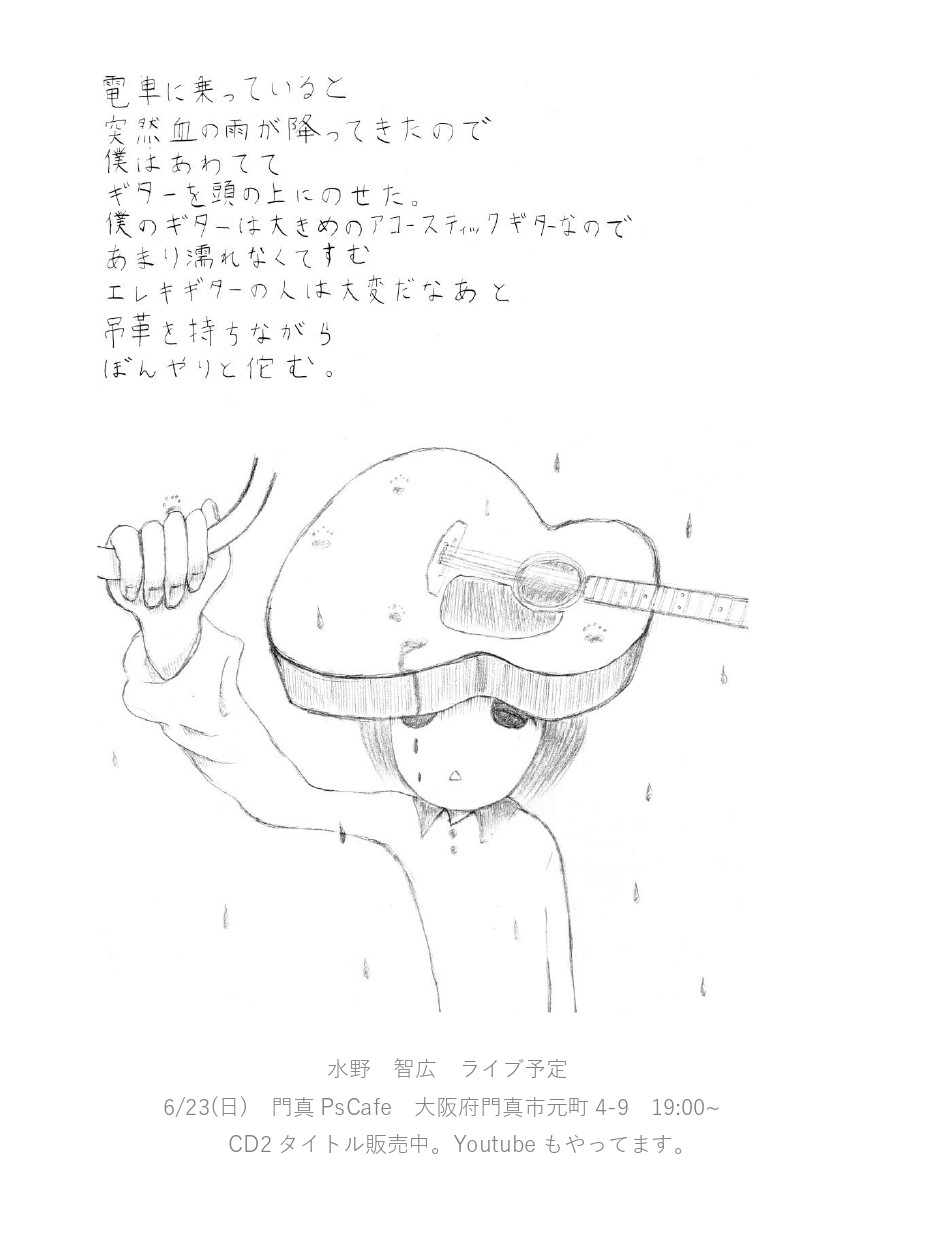 電車に乗っていると
突然血の雨が降ってきたので
僕はあわてて
ギターを頭の上にのせた。
僕のギターは大きめのアコースティックギターなので
あまり濡れなくてすむ
エレキギターの人は大変だなあと
吊革を持ちながら
ぼんやりと佗む。
水野　智広　ライブ予定
6/23(日)　門真 PsCafe　大阪府門真市元町 4-9　19:00~
CD2 タイトル販売中。Youtube もやってます。